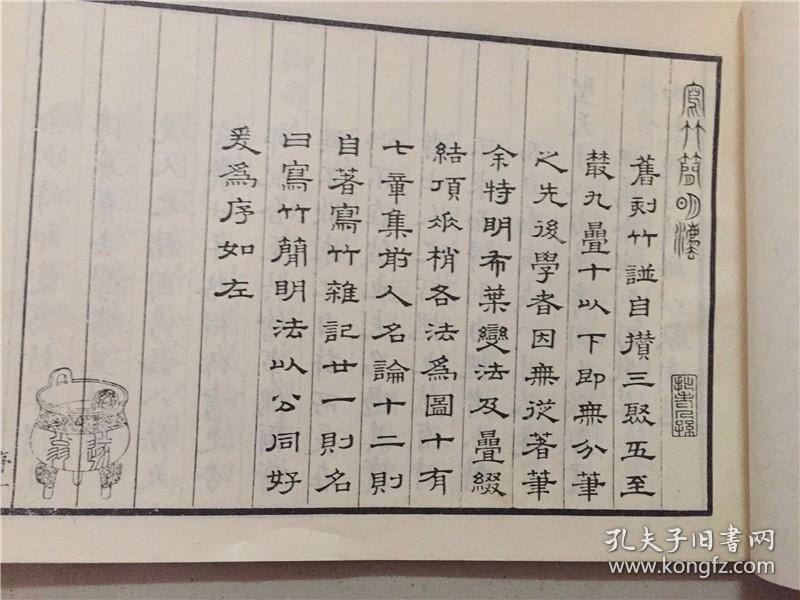 寫竹簡明法
舊刻竹譜自攢三聚五至
叢九疊十以下即無分筆
之先後學者因無從著筆
余特明布葉變法及疊綴
結頂放梢各法為圖十有
七章集前人名論十二則
自著寫竹雜記廿一則名
曰寫竹簡明法以公同好
爰為序如左
序一
孔夫子旧书网
www.kongfz.com